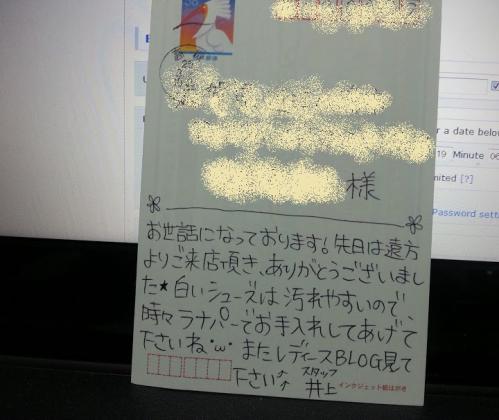 様
お世話になっております！先日は遠方
よりご来店頂き、ありがとうございまし
た★白いシューズは汚れやすいので、
時々ラナパーでお手入れしてあげて
下さいね･ω･ またレディースBLOG見て
下さい⤴⤴ スタッフ
井上
インクジェット紙はがき
r a date below
19 Minute 06
mited [?]
Password sett